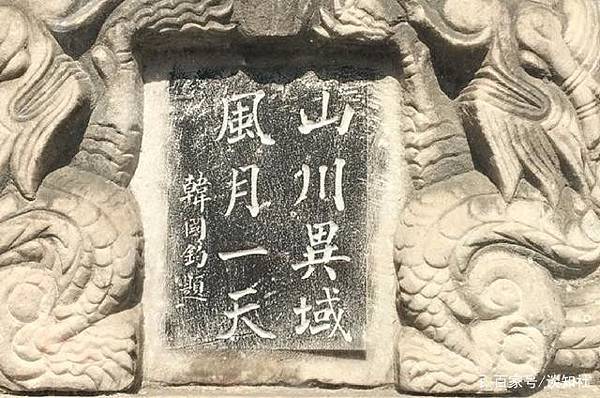 山川異域
風月一天
韓國鈞題
百家号/谈知社